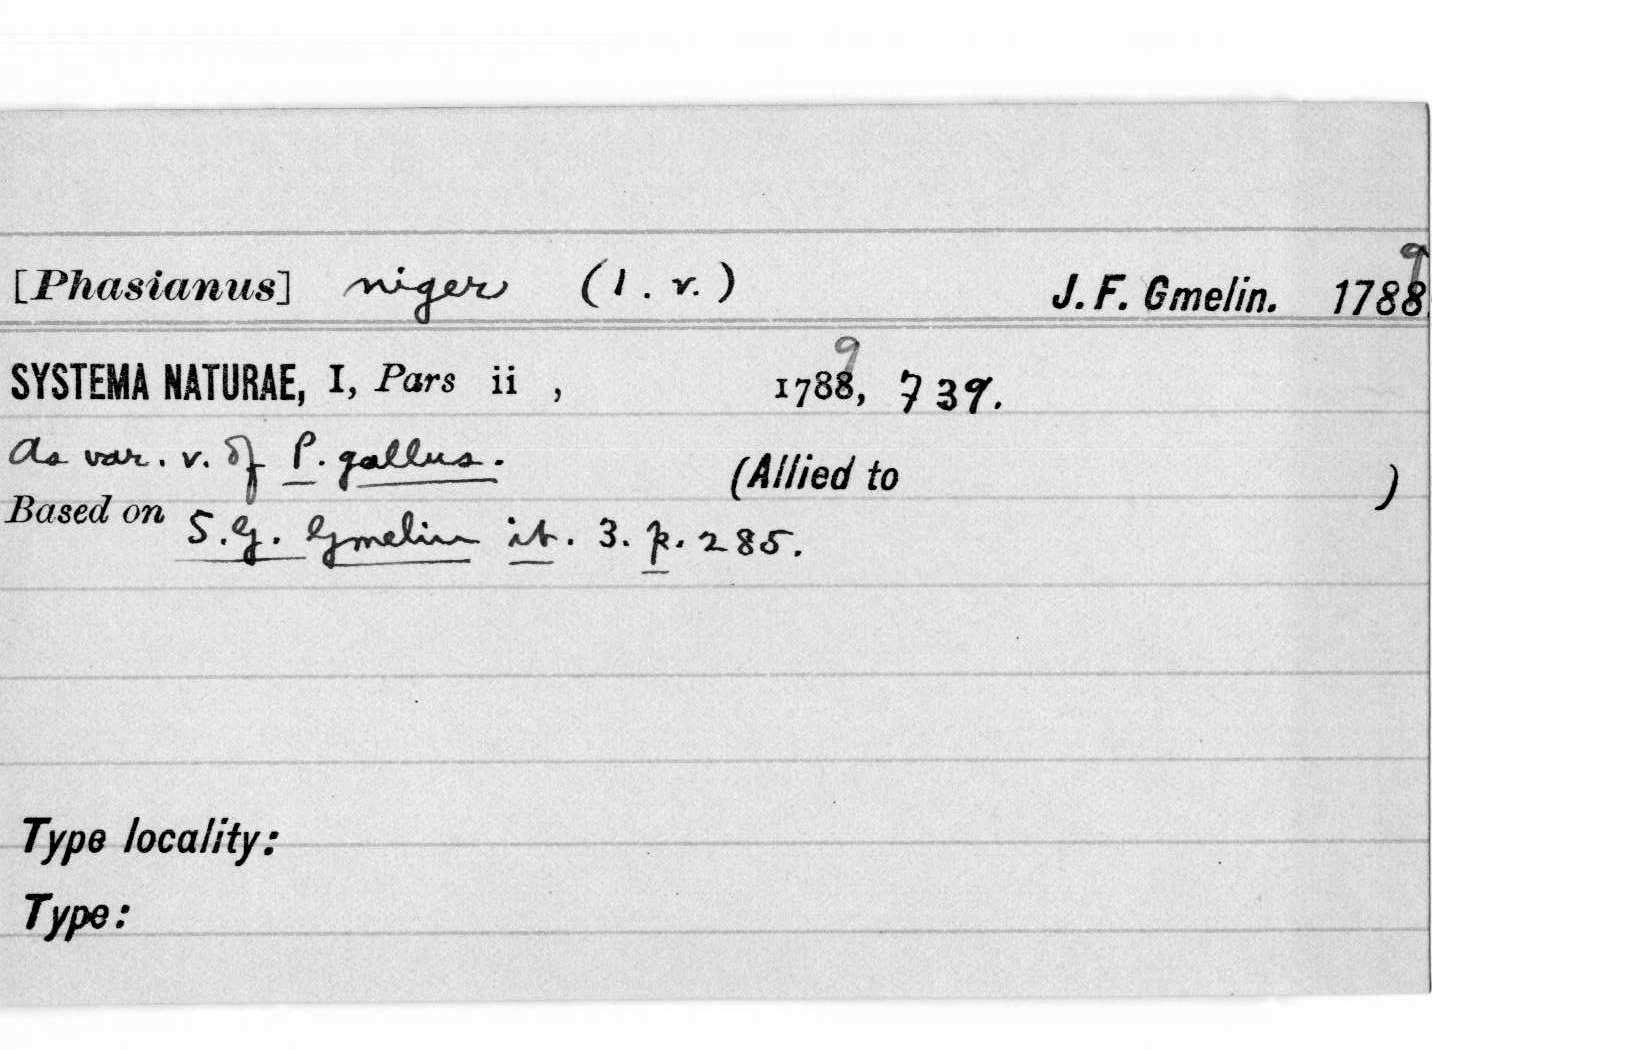 [Phasianus] niger (1. v.) J. F. Gmelin. 17889
SYSTEMA NATURAE, I, Pars ii , 17889, 739.
As var. v. of P. gallus. (Allied to )
Based on S. G. Gmelin it. 3. p. 285.
Type locality:
Type: